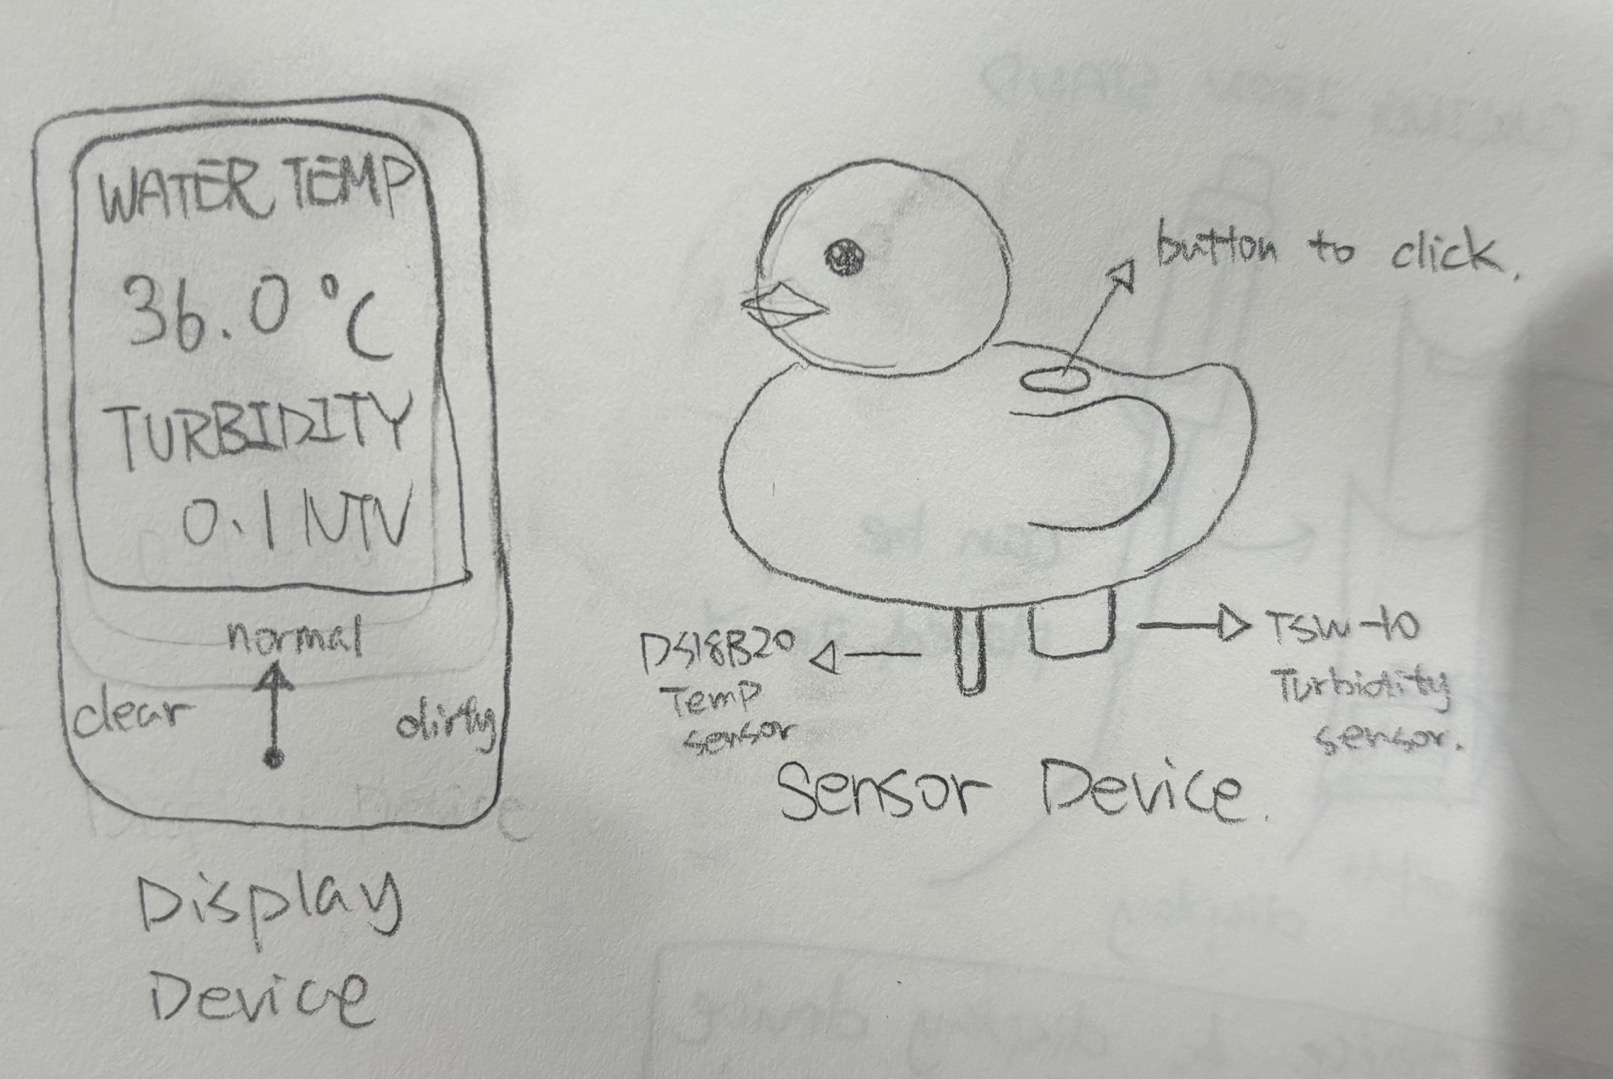 WATER TEMP
36.0 °C
TURBIDITY
0.1 NTV
normal
clear
dirty
Display
Device
button to click.
DS18B20
Temp
sensor
TSW-10
Turbidity
sensor.
Sensor Device.